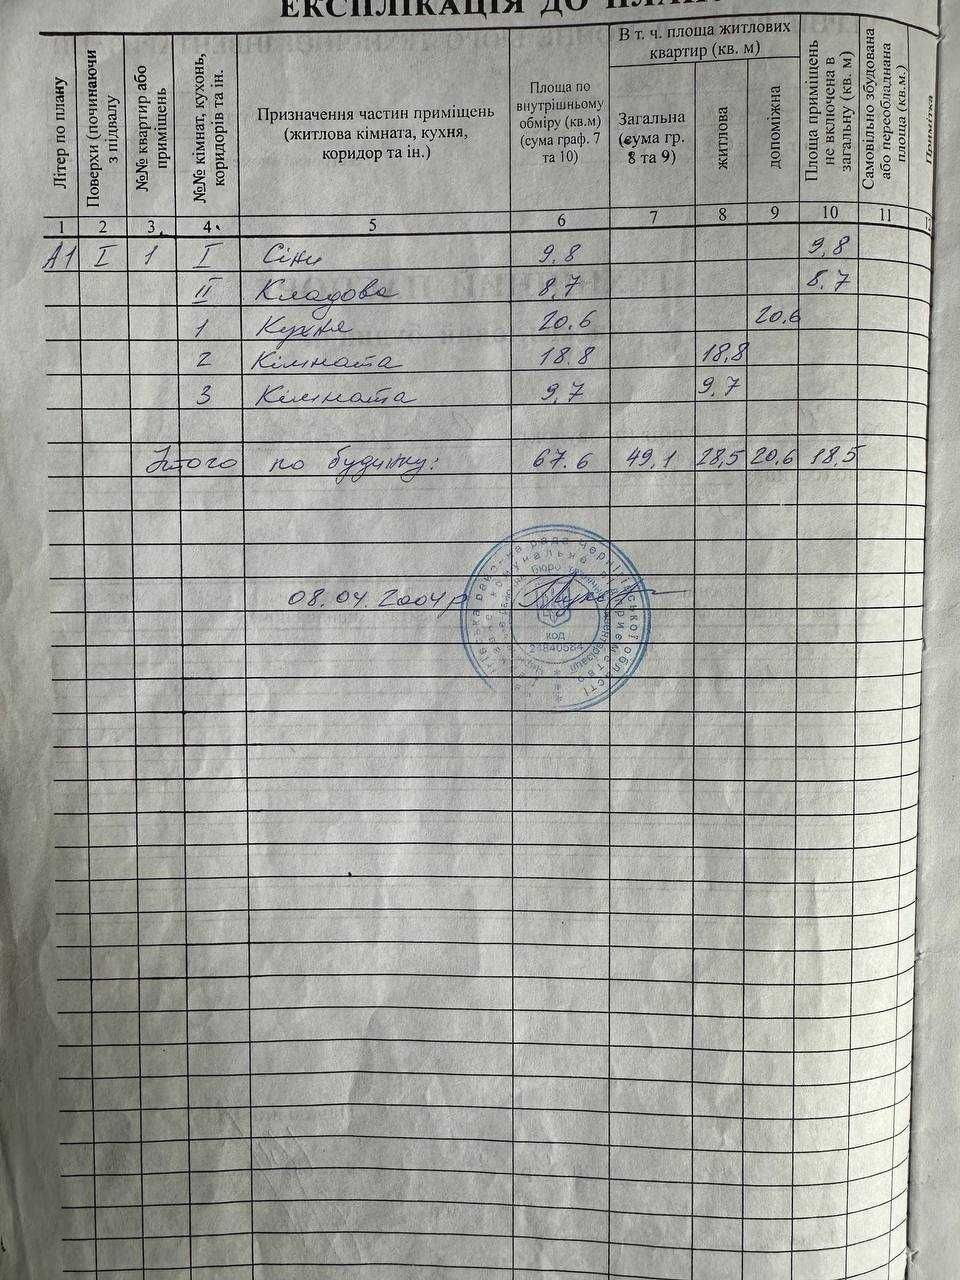 ЕКСПЛІКАЦІЯ ДО ПЛАН
Літер по плану
Поверхи (починаючи з підвалу
№№ квартир або приміщень
№№ кімнат, кухонь, коридорів та ін.
Призначення частин приміщень
(житлова кімната, кухня,
коридор та ін.)
Площа по
внутрішньому
обміру (кв.м)
(сума граф. 7
та 10)
В т. ч. площа житлових
квартир (кв. м)
Загальна
(сума гр.
8 та 9)
житлова
допоміжна
Площа приміщень не включена в загальну (кв. м)
Самовільно збудована або переобладнана площа (кв.м.)
Примітка
1 2 3 4 5 6 7 8 9 10 11 12
А1 I 1 I Сіни 9.8 9,8
II Кладова 8,7 8.7
1 Кухня 20.6 20.6
2 Кімната 18.8 18,8
3 Кімната 9,7 9,7
Итого по будинку: 67.6 49,1 28,5 20,6 18,5
08.04.2004р
районна рада Чернігівської області
комунальне підприємство
Бюро технічної інвентаризації
код
24840584